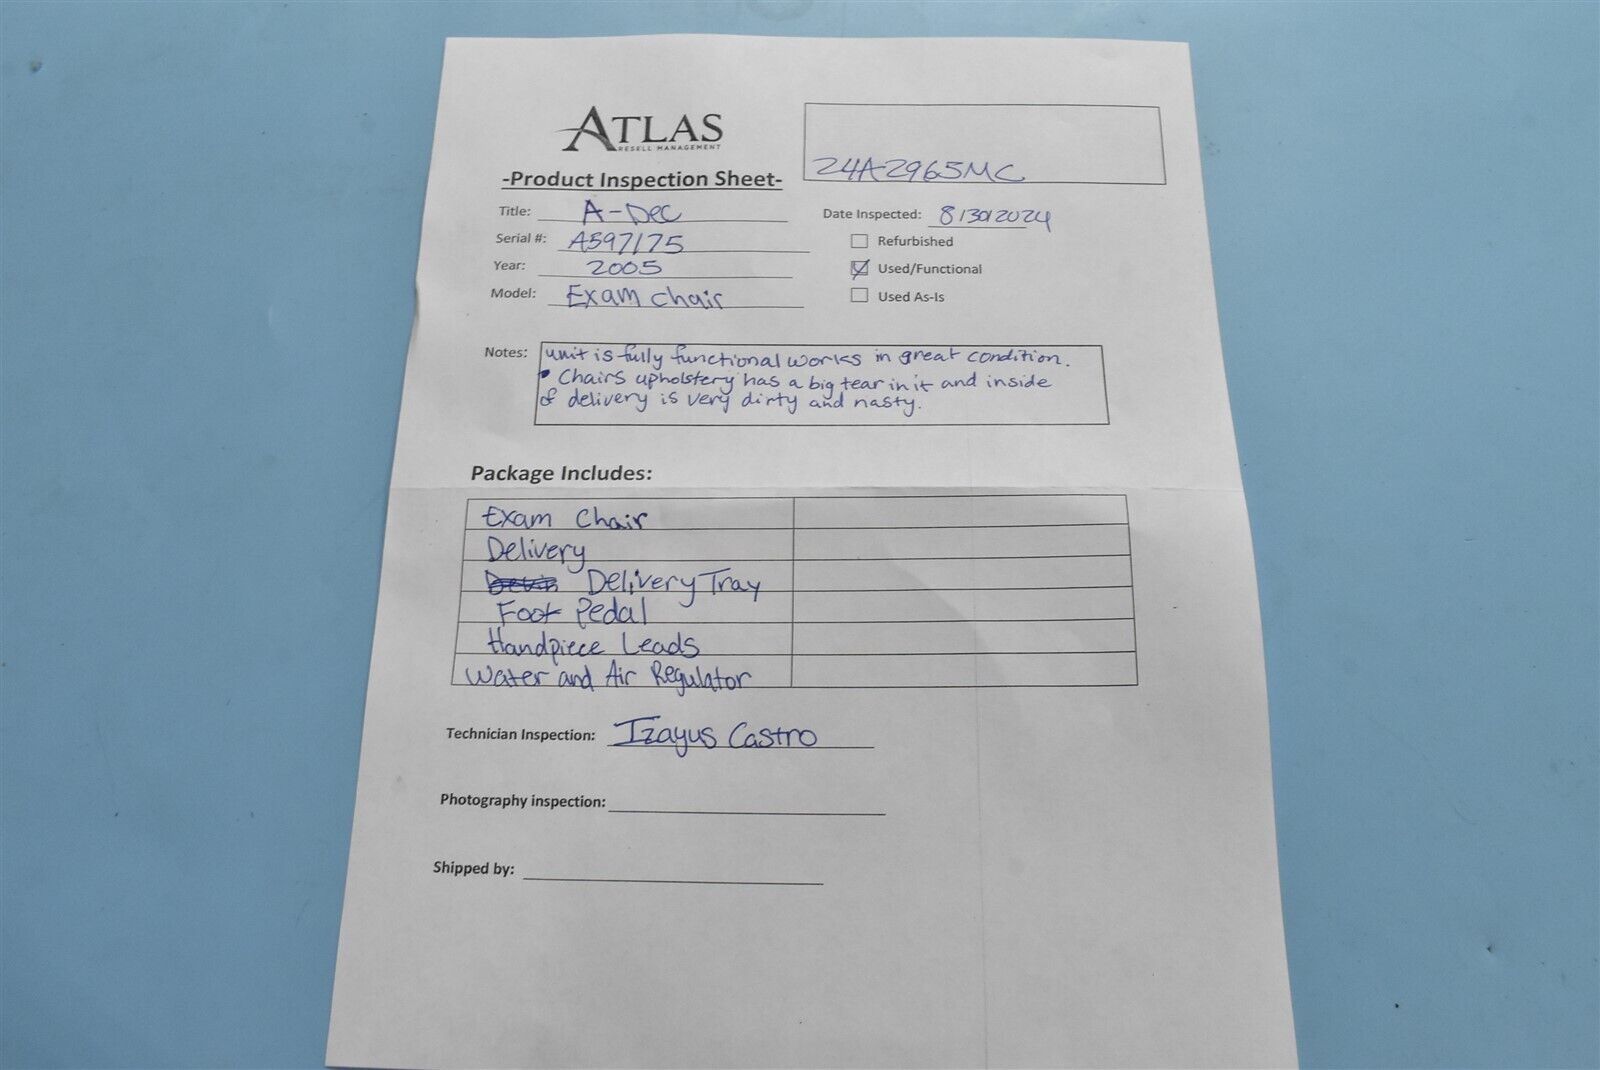 ATLAS
RESELL MANAGEMENT
24A2965MC
-Product Inspection Sheet-
Title: A-Dec
Date Inspected: 8/30/2024
Serial #: A597175
Refurbished
Year: 2005
Used/Functional
Model: Exam Chair
Used As-Is
Notes: unit is fully functional works in great condition.
• Chairs upholstery has a big tear in it and inside
of delivery is very dirty and nasty.
Package Includes:
Exam Chair
Delivery
Delivery Tray
Foot Pedal
Handpiece Leads
Water and Air Regulator
Technician Inspection: Izayus Castro
Photography inspection:
Shipped by: